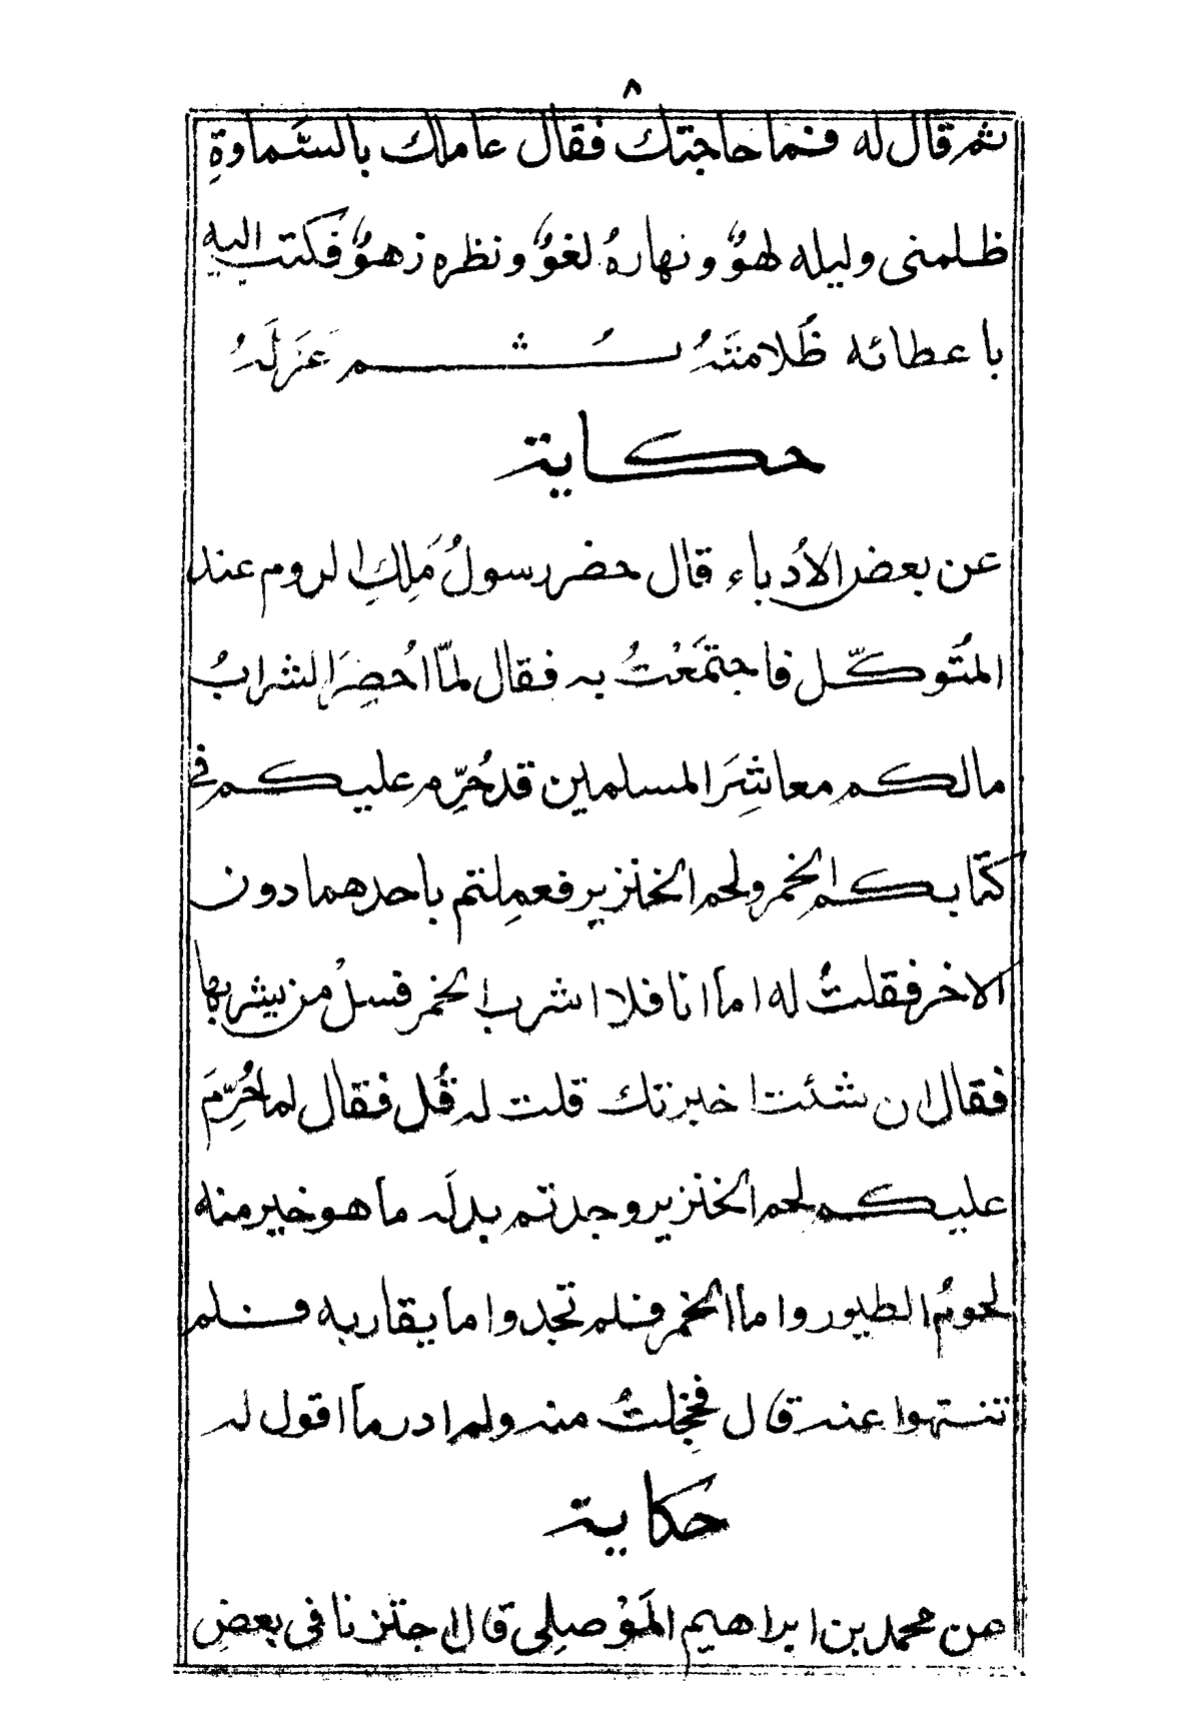 ٨
ثم قال له فما حاجتك فقال عاملك بالسَّماوةِ
ظلمنى وليله لهوٌ ونهارهُ لغوٌ ونظره زهوٌ فكتب اليه
باعطائه ظُلامتَهُ ثُم عَزَلَهُ
حكاية
عن بعض الأُدباء قال حضر رسولُ مَلِكِ الروم عند
المُتَوكّل فاجتمَعْتُ به فقال لمّا اُحضِرَ الشرابُ
مالكم معاشِرَ المسلمين قد حُرِّم عليكم فى
كتابكم الخمر ولحم الخنزير فعمِلتم باحدهما دون
الاخر فقلتُ له اما انا فلا اشرب الخمر فسلْ من يشربها
فقال ان شئت اخبرتك قلت له قُل فقال لما حُرِّمَ
عليكم لحم الخنزير وجدتم بدلَه ما هو خير منه
لحومُ الطيور واما الخمر فلم تجدوا ما يقاربه فلم
تنتهوا عنه قال فخجِلتُ منه ولم ادر ما اقول له
حكاية
عن محمد بن ابراهيم المَوْصِلى قال اجتزنا فى بعضِ